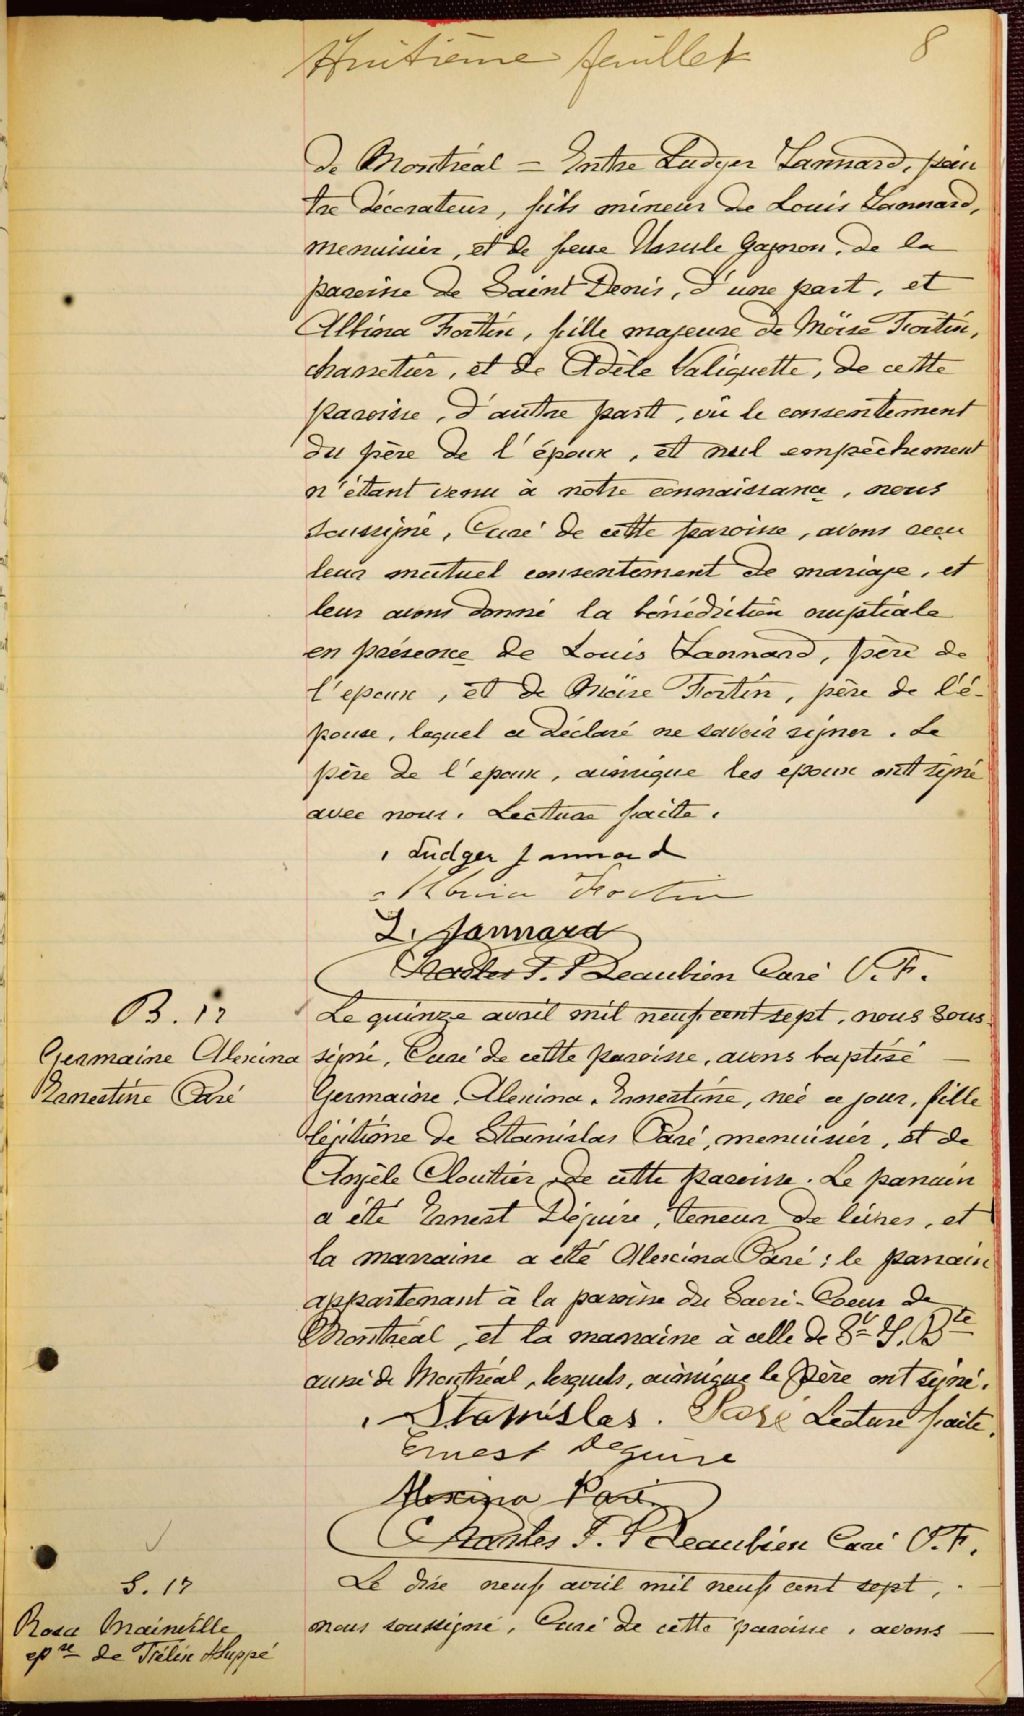 Huitième feuillet 8
de Montréal = Entre Ludger Jannard, pein
tre décorateur, fils mineur de Louis Jannard,
menuisier, et de feue Ursule Gagnon, de la
paroisse de Saint Denis, d'une part, et
Albina Fortin, fille majeure de Moïse Fortin,
charretier, et de Adèle Valiquette, de cette
paroisse, d'autre part, vû le consentement
du père de l'époux, et nul empêchement
n'étant venu à notre connaissance, nous
soussigné, Curé de cette paroisse, avons reçu
leur mutuel consentement de mariage, et
leur avons donné la bénédiction nuptiale
en présence de Louis Jannard, père de
l'époux, et de Moïse Fortin, père de l'é-
pouse, lequel a déclaré ne savoir signer. Le
père de l'époux, ainsique les époux ont signé
avec nous. Lecture faite.
Ludger Jannard
Albina Fortin
L. Jannard
Charles F. P Beaubien Curé V.F.
B. 17
Germaine Alexina
Ernestine Paré
Le quinze avril mil neuf cent sept, nous sous
signé, Curé de cette paroisse, avons baptisé
Germaine, Alexina, Ernestine, née ce jour, fille
légitime de Stanislas Paré, menuisier, et de
Angèle Cloutier, de cette paroisse. Le parrain
a été Ernest Déguire, teneur de livres, et
la marraine a été Alexina Paré; le parrain
appartenant à la paroisse du Sacré-Coeur de
Montréal, et la marraine à celle de St J. Bte
aussi de Montréal, lesquels, ainsique le père ont signé.
Stanislas. Paré Lecture faite.
Ernest Deguire
Alexina Paré
Charles F. P Beaubien Curé V.F.
S. 17
Rosa Mainville
epse de Félix Huppé
Le dix neuf avril mil neuf cent sept,
nous soussigné, Curé de cette paroisse, avons